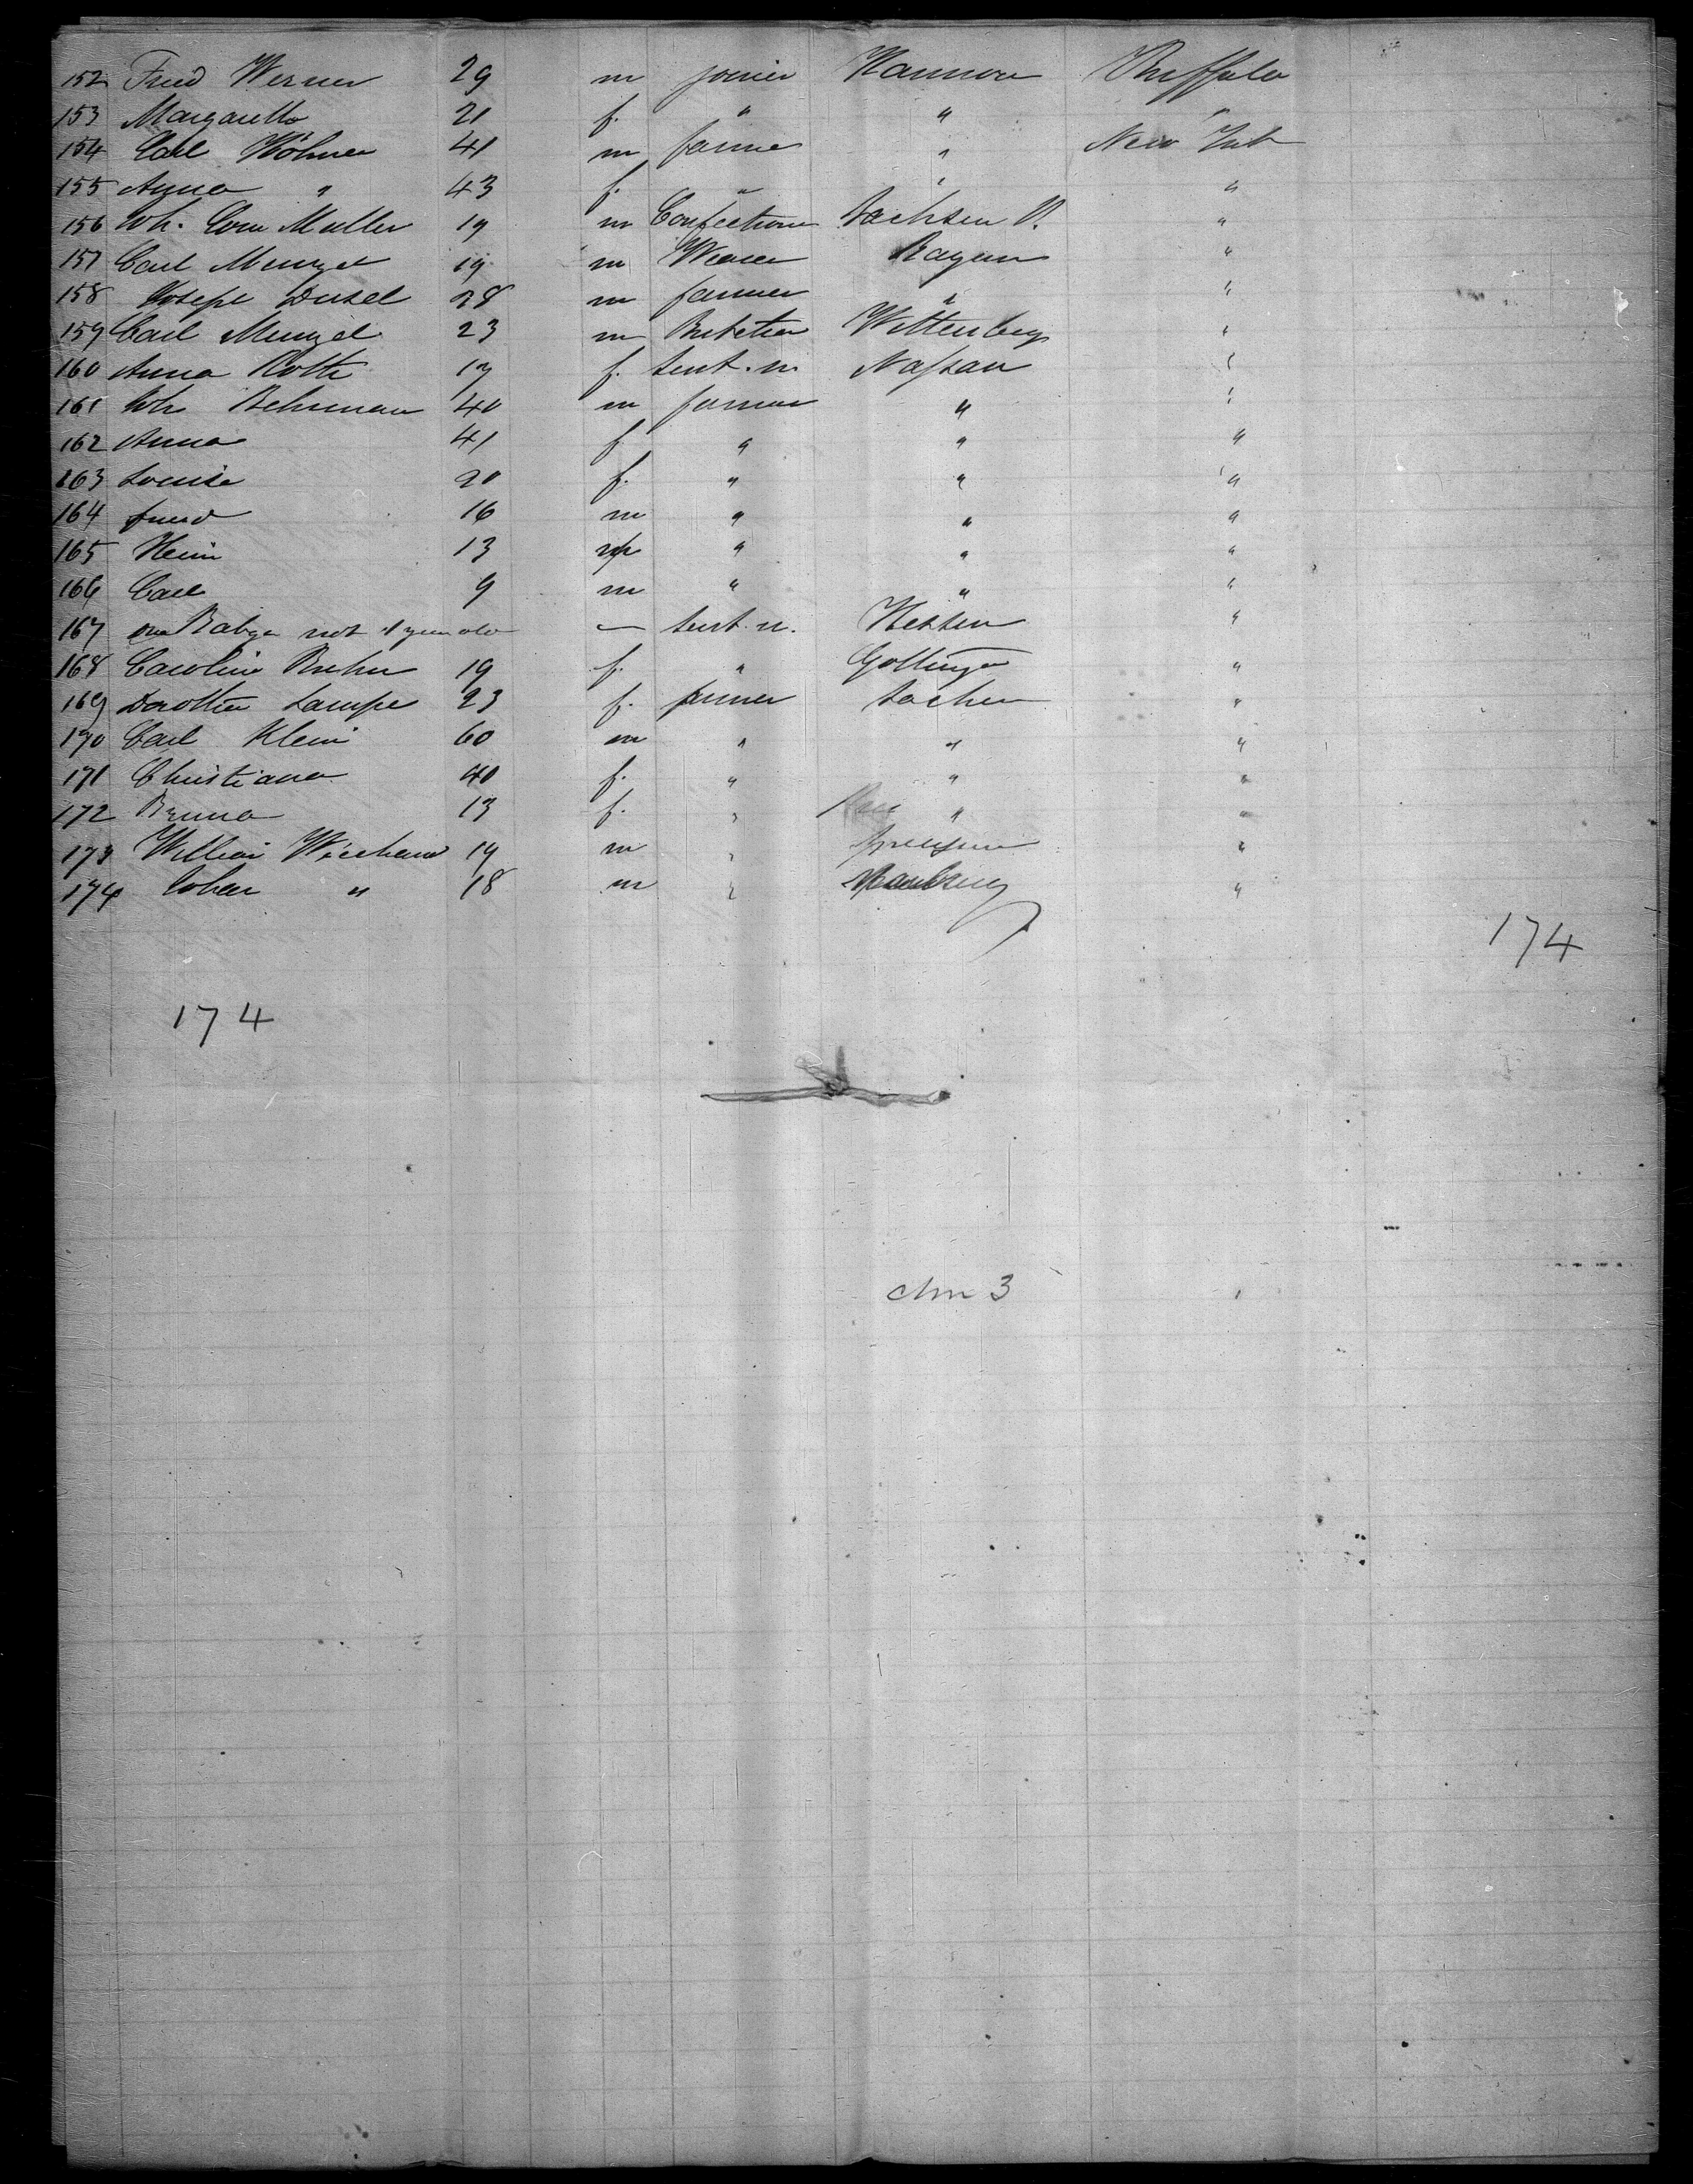 152 Fried Werner 29 m joiner Hannover Buffalo
153 Margarette 21 f. " " "
154 Carl Wöhner 41 m farmer " New York
155 Anna " 43 f. " " "
156 Joh. Conr Muller 19 m Confectioner Sachsen "
157 Carl Menzel 19 m Weaver Bayern "
158 Joseph Dusel 28 m farmer " "
159 Carl Menzel 23 m Wittenberg "
160 Anna Roth 17 f. Nassau "
161 Joh Behrman 40 m farmer " "
162 Anna 41 f " " "
163 Louise 20 f. " " "
164 fried 16 m " " "
165 Heinr 13 " " "
166 Carl 9 m " " "
167 one Babye not 1 year old — Hessen "
168 Caroline 19 f. " Gottingen "
169 Dorothea Lampe 23 f. farmer Sachen "
170 Carl Klein 60 m " " "
171 Christiana 40 f. " " "
172 Bruno 13 f. " " "
173 William 19 m " "
174 Johan " 18 m " "
174
174
3